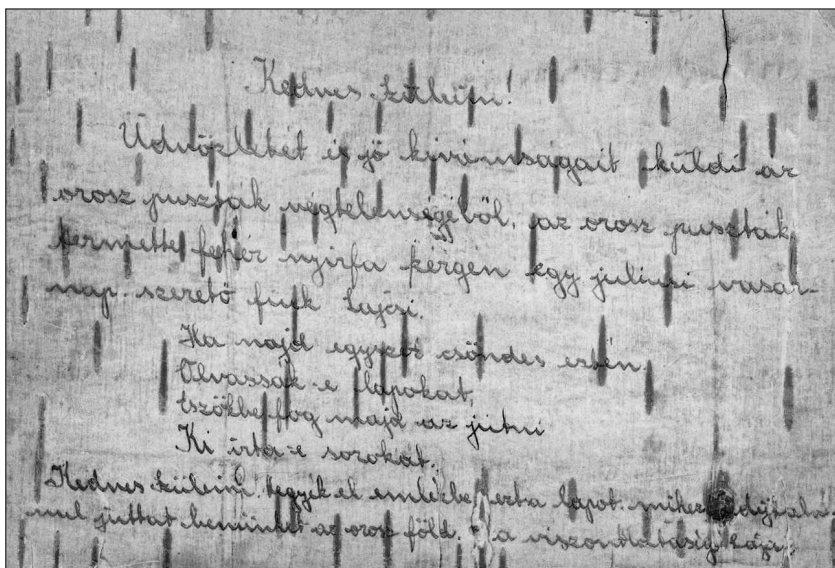 Kedves Szüleim!
Üdvözletét és jó kivánságait küldi az
orosz puszták végtelenségéből, az orosz puszták
termette fehér nyirfa kérgén egy juliusi vasár-
nap. szerető fiuk Lajcsi.
Ha majd egyszer csöndes estén
Olvassák e lapokat,
Eszökbe fog majd az jutni
Ki irta e sorokat.
Kedves Szüleim! tegyék el emlékbe ezt a lapot.
juttat bennünket az orosz föld. a viszontlátásig